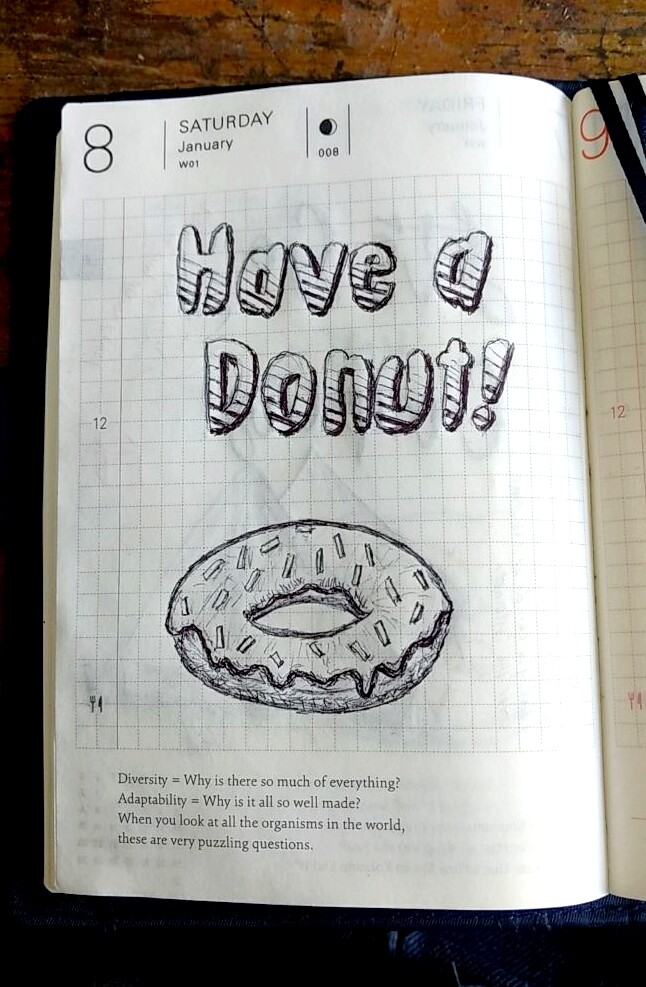 8
SATURDAY
January
W01
008
9
Have a
Donut!
12
12
Diversity = Why is there so much of everything?
Adaptability = Why is it all so well made?
When you look at all the organisms in the world,
these are very puzzling questions.